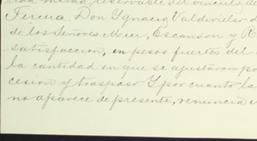 Teresa Don Ignacio Valdivielso d
de los Señores Mier, Escanson y R
satisfaccion, en pesos fuertes del
la cantidad en que se ajustaron po
cesion y traspaso y por cuanto la
no aparece de presente, renuncia e